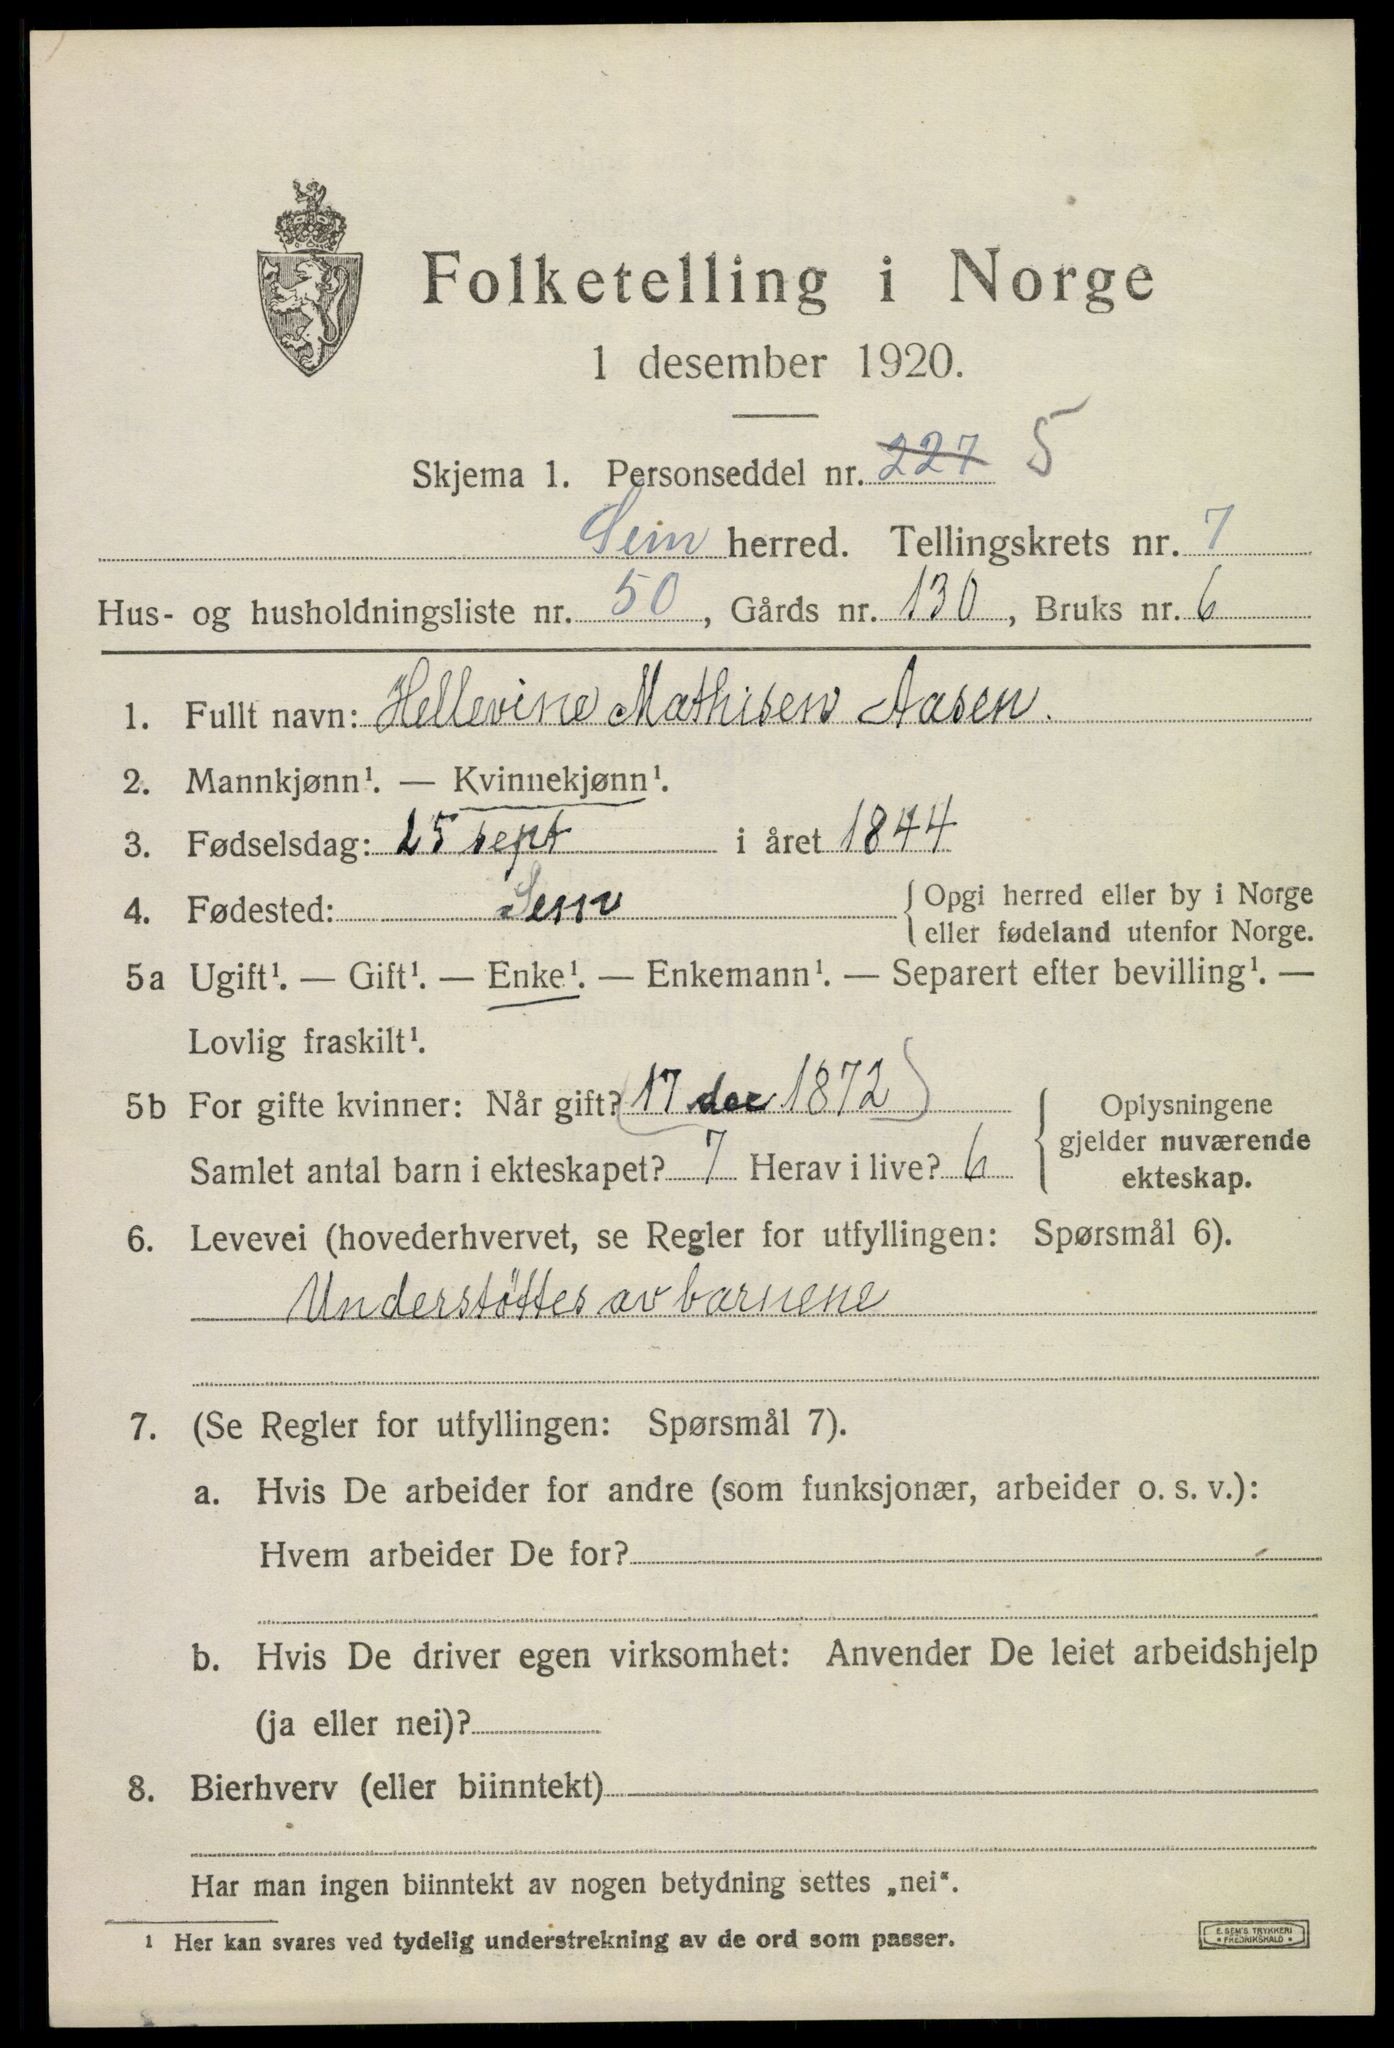 Folketelling i Norge
1 desember 1920.
Skjema 1. Personseddel nr. 227 5
Sem herred. Tellingskrets nr. 7
Hus- og husholdningsliste nr. 50, Gårds nr. 130, Bruks nr. 6
1. Fullt navn: Hellevine Mathisen Aasen.
2. Mannkjønn¹. — Kvinnekjønn¹.
3. Fødselsdag: 25 sept i året 1844
4. Fødested: Sem { Opgi herred eller by i Norge
eller fødeland utenfor Norge.
5a Ugift¹. — Gift¹. — Enke¹. — Enkemann¹. — Separert efter bevilling¹. —
Lovlig fraskilt¹.
5b For gifte kvinner: Når gift? (17 dec 1872)
Samlet antal barn i ekteskapet? 7 Herav i live? 6
{ Oplysningene
gjelder nuværende
ekteskap.
6. Levevei (hovederhvervet, se Regler for utfyllingen: Spørsmål 6).
Understöttes av barnene
7. (Se Regler for utfyllingen: Spørsmål 7).
a. Hvis De arbeider for andre (som funksjonær, arbeider o. s. v.):
Hvem arbeider De for?
b. Hvis De driver egen virksomhet: Anvender De leiet arbeidshjelp
(ja eller nei)?
8. Bierhverv (eller biinntekt)
Har man ingen biinntekt av nogen betydning settes „nei“.
¹ Her kan svares ved tydelig understrekning av de ord som passer.
E. SEM'S TRYKKERI
• FREDRIKSHALD •